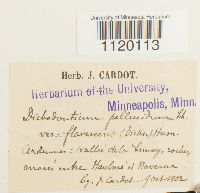 University of Minnesota Herbarium
1120113
Herb. J. CARDOT.
Herbarium of the University,
Minneapolis, Minn.
Dichodontium pellucidum Sch.
var. flavescens (Dicks.) Husn.
Ardennes: vallée de la Semoy, roches
entre Haulmé et
Lg. J. Cardot. 9 oct. 1902